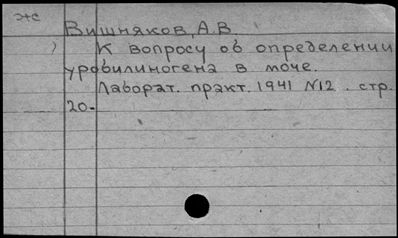 жс
Вишняков, А.В.
К вопросу об определении
уробилиногена в моче.
Лаборат. практ. 1941 N12. стр.
20-